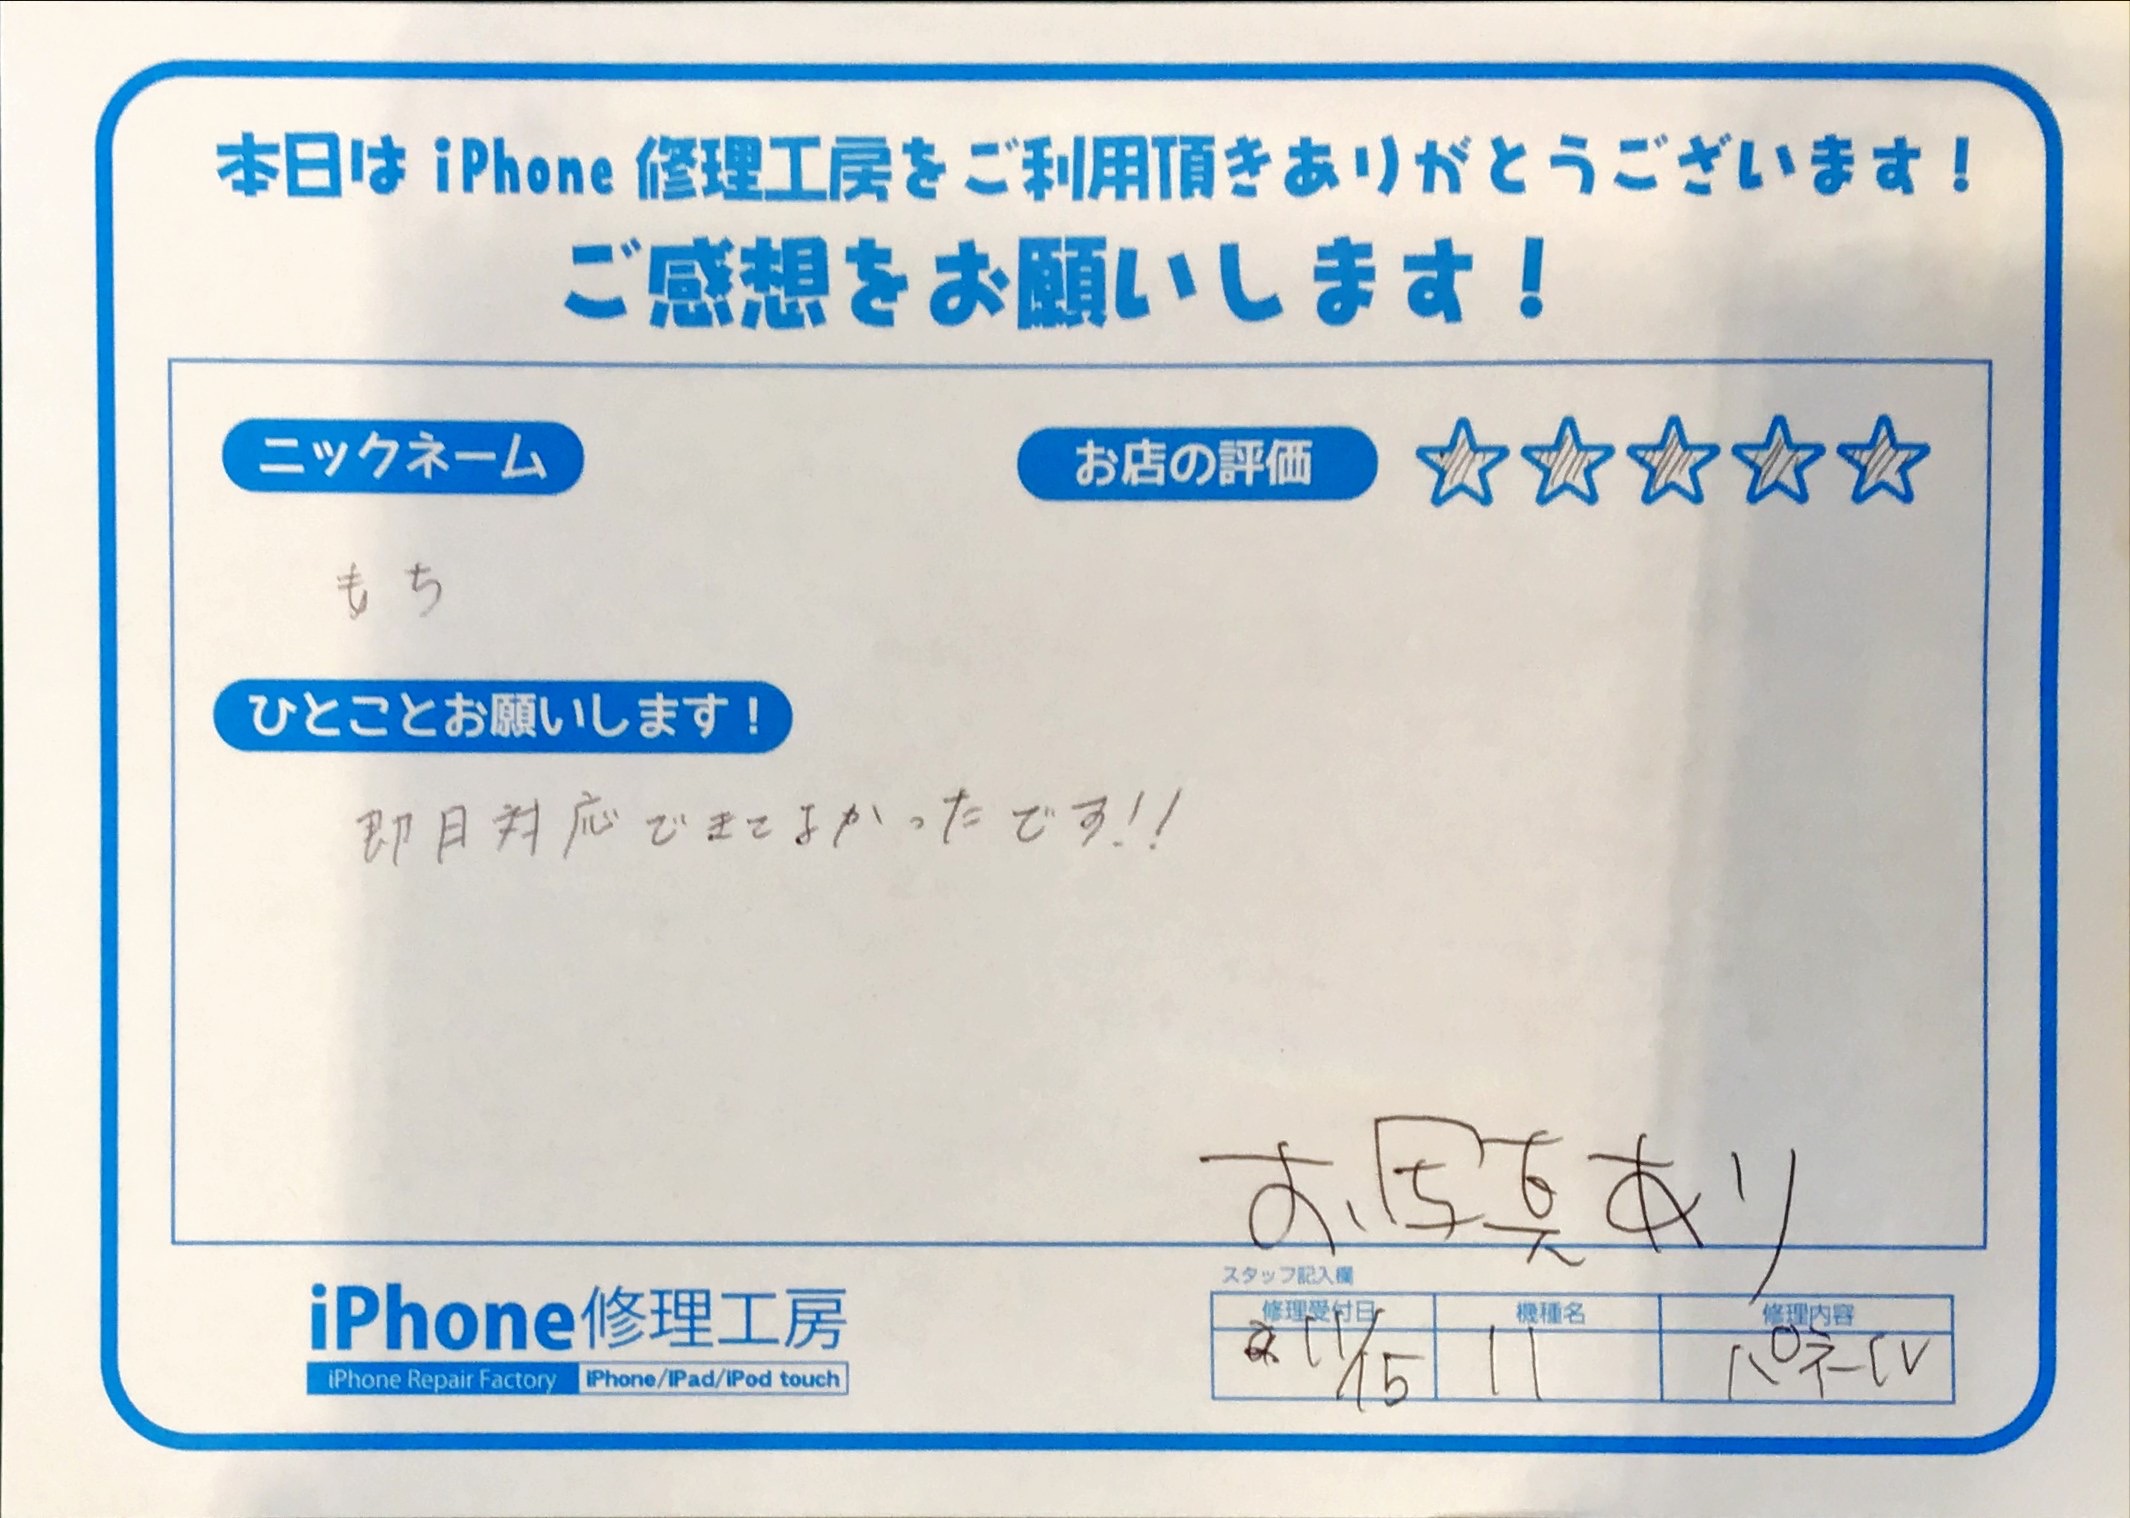 本日は iPhone 修理工房をご利用頂きありがとうございます！
ご感想をお願いします！
ニックネーム
お店の評価
もち
ひとことお願いします！
即日対応できてよかったです!!
お写真あり
スタッフ記入欄
修理受付日 機種名 修理内容
11/15 11 パネル
iPhone修理工房
iPhone Repair Factory iPhone/iPad/iPod touch